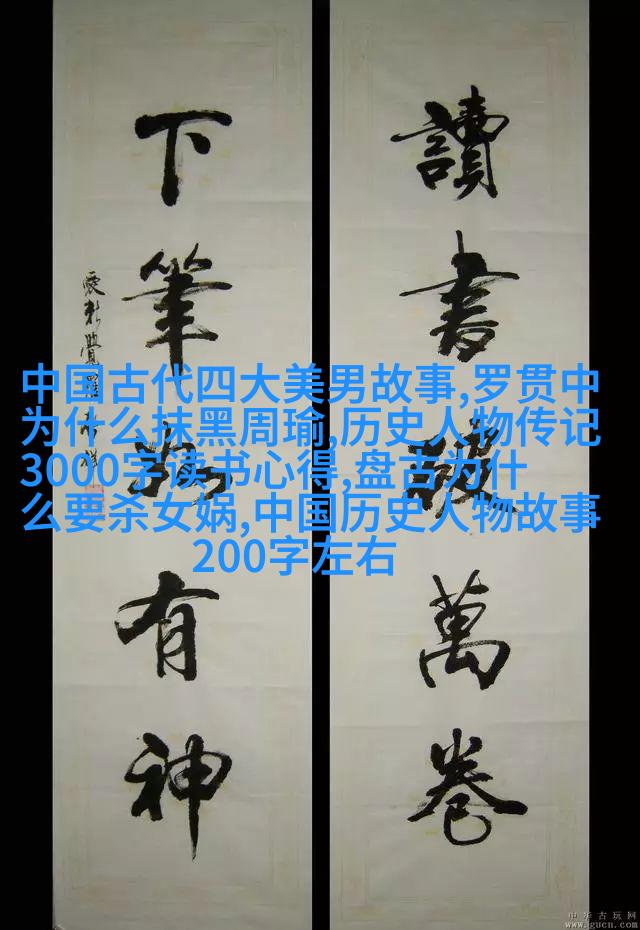 讀書破萬卷
下筆如有神
愛新覺羅
中国古代四大美男故事,罗贯中
为什么抹黑周瑜,历史人物传记
3000字读书心得,盘古为什
么要杀女娲,中国历史人物故事
200字左右
中华古玩网
www.gucn.com